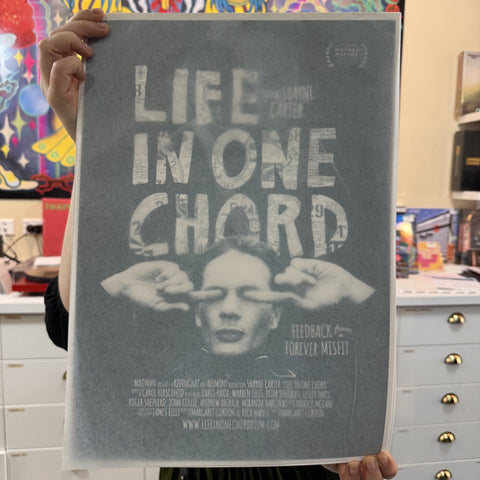 LIFE
SHAYNE
CARTER
IN ONE
CHORD
FEEDBACK from
FOREVER MISFIT
MADMAN PRESENTS A RIDINGHAT AND BELMONT PRODUCTION SHAYNE CARTER IN "LIFE IN ONE CHORD"
CAROL HIRSCHFELD CHRIS KNOX, WARREN ELLIS, PETER JEFFERIES, LESLEY PARIS
ROGER SHEPHERD, JOHN COLLIE, ANDREW BROUGH, MIRANDA HARCOURT
JAMES ELLIS MARGARET GORDON & RICK HARVIE MARGARET GORDON
WWW.LIFEINONECHORDFILM.COM